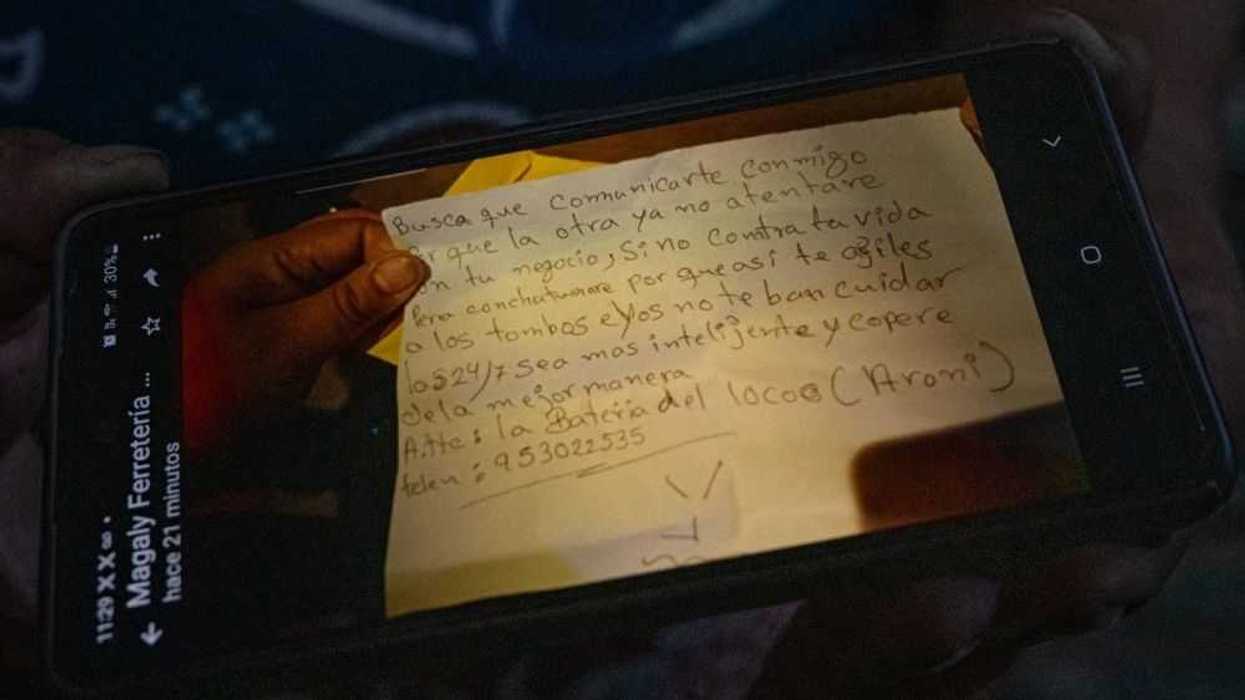 11:29 X X ∞ •
30%
← Magaly Ferretería ...
hace 21 minutos
Busca que comunicarte conmigo
que la otra ya no atentare
tu negocio, Sino contra ta vida
por que asi te
a los tombos eyos no te ban cuidar
los 24/7 sea mas intelijente y copere
dela mejor manera
Atte: la Bateria del locoo (Aroni)
telen: 953022535